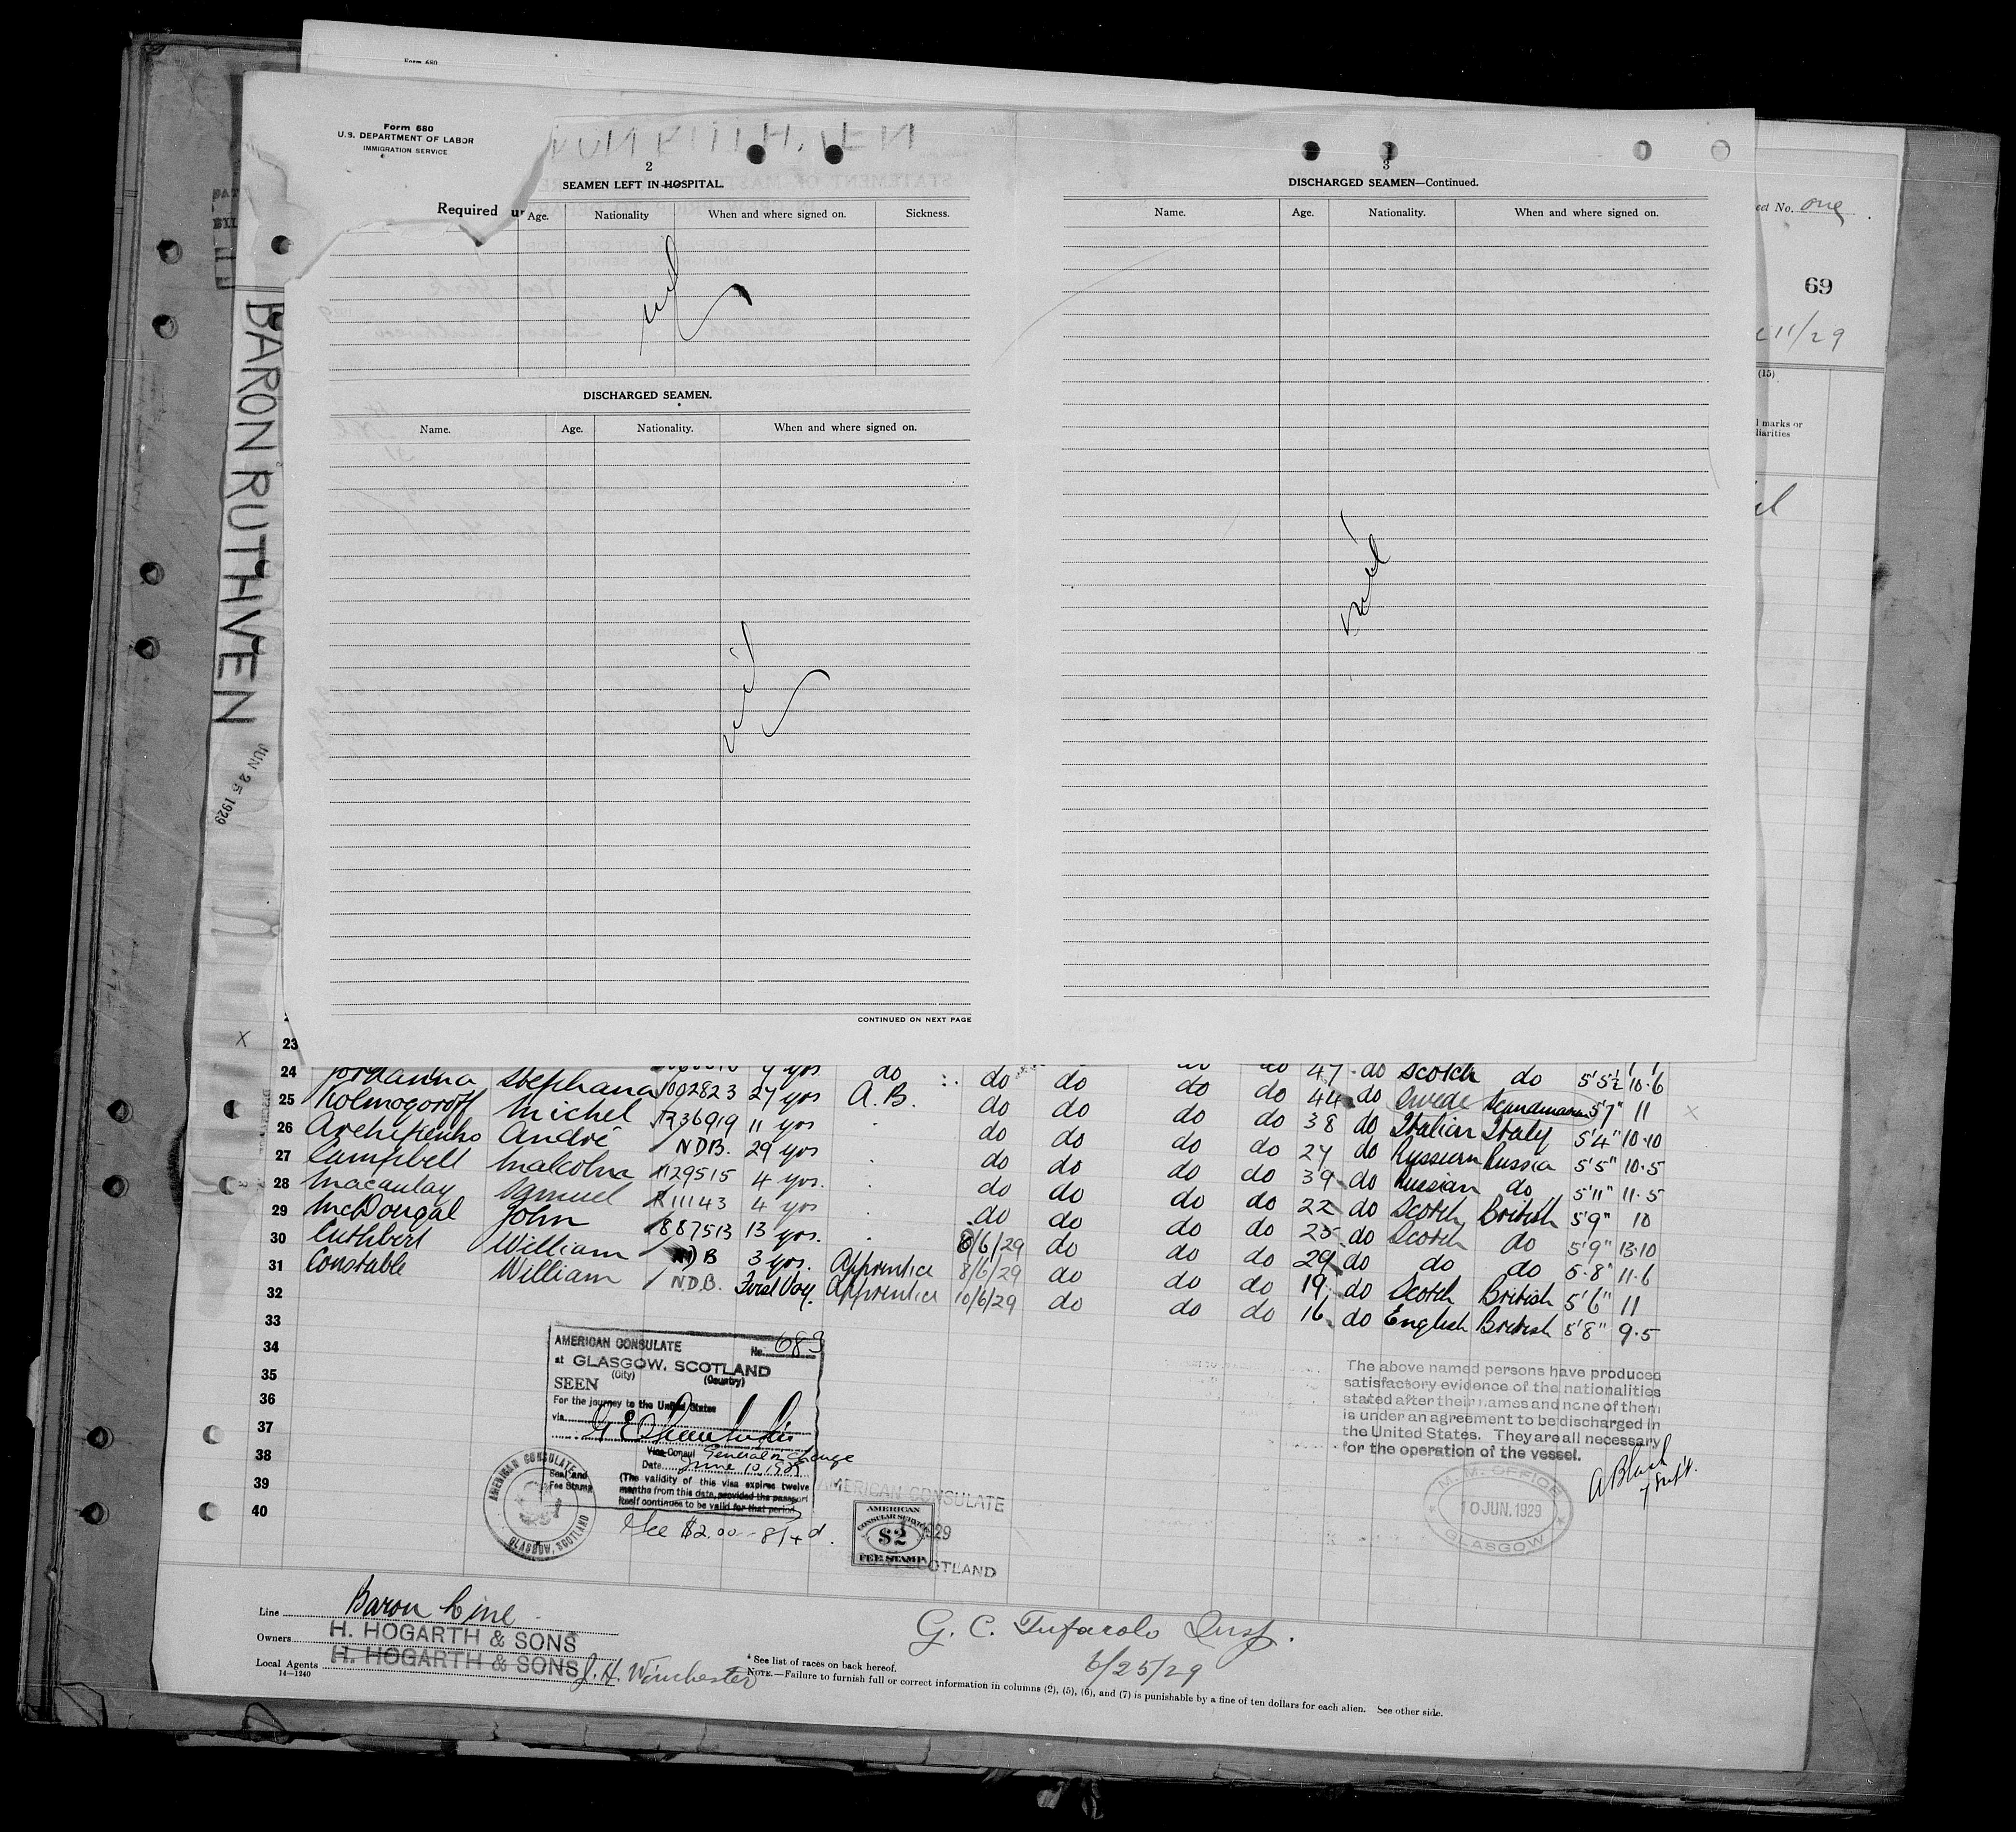 Form 680
Form 680
U.S. DEPARTMENT OF LABOR
IMMIGRATION SERVICE
Required
2
SEAMEN LEFT IN HOSPITAL.
Age. Nationality When and where signed on. Sickness.
nil
DISCHARGED SEAMEN.
Name. Age. Nationality. When and where signed on.
nil
CONTINUED ON NEXT PAGE
3
DISCHARGED SEAMEN—Continued.
Name. Age. Nationality. When and where signed on.
nil
No. one
69
11/29
(15)
marks or
BARON RUTHVEN
JUN 25 1929
X
23
24
25
26
27
28
29
30
31
32
33
34
35
36
37
38
39
40
4 yrs do do do do do 47 do Scotch do 5'5½ 10.6
Stephana 1002823 27 yrs A.B. do do do do 44 do Swede Scandinavian 5'7" 11
Kolmogoroff Michel 11 yrs do do do do 38 do Italian Italy 5'4" 10.10
André N.D.B. 29 yrs do do do do 27 do Russian Russia 5'5" 10.5
Campbell Malcolm 4 yrs. do do do do 39 do Russian do 5'11" 11.5
Macaulay Samuel 4 yrs do do do do 22 do Scotch British 5'9" 10
McDougal John 887513 13 yrs. 8/6/29 do do do 25 do Scotch do 5'9" 13.10
Cuthbert William 3 yrs. Apprentice 8/6/29 do do do 29 do do do 5.8" 11.6
Constable William N.D.B. First Voy. Apprentice 10/6/29 do do do 19 do Scotch British 5'6" 11
do do 16 do English British 5'8" 9.5
AMERICAN CONSULATE No. 683
at GLASGOW, SCOTLAND
(City) (Country)
SEEN
For the journey to the United States
via
Vice Consul General in Charge
Date June 10, 1929
(The validity of this visa expires twelve
months from this date, provided the passport
itself continues to be valid for that period.
Seal and
Fee Stamp
AMERICAN CONSULATE
GLASGOW, SCOTLAND
Fee $2.00 - 8/4d.
AMERICAN CONSULATE
1929
SCOTLAND
AMERICAN
CONSULAR SERVICE
$2
FEE STAMP
The above named persons have produced
satisfactory evidence of the nationalities
stated after their names and none of them
is under an agreement to be discharged in
the United States. They are all necessary
for the operation of the vessel.
A Black
Supt.
M.M. OFFICE
10 JUN. 1929
GLASGOW
Line Baron Line
Owners H. HOGARTH & SONS
Local Agents H. HOGARTH & SONS J. H. Winchester
14—1240
G. C. Tufarolo Insp.
6/25/29
* See list of races on back hereof.
NOTE.—Failure to furnish full or correct information in columns (2), (5), (6), and (7) is punishable by a fine of ten dollars for each alien. See other side.